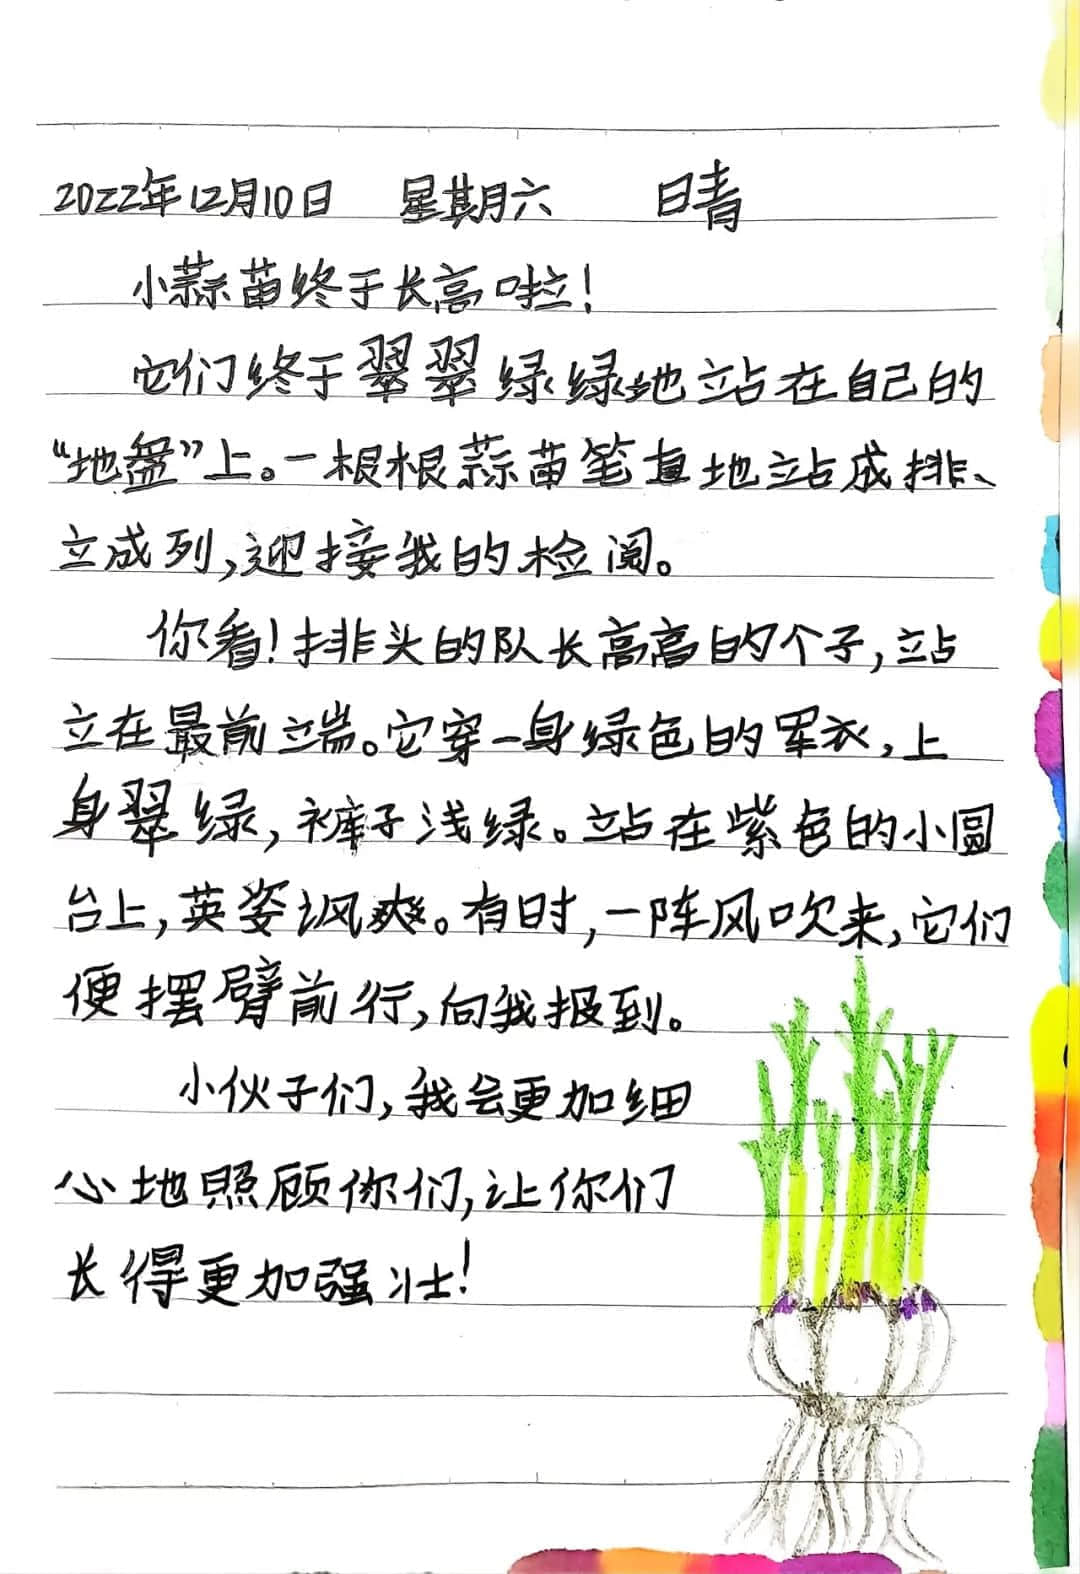 2022年12月10日 星期六 晴
小蒜苗终于长高啦!
它们终于翠翠绿绿地站在自己的
“地盘”上。一根根蒜苗笔直地站成排、
立成列,迎接我的检阅。
你看!排头的队长高高的个子,站
立在最前端。它穿一身绿色的军衣,上
身翠绿,裤子浅绿。站在紫色的小圆
台上,英姿飒爽。有时,一阵风吹来,它们
便摆臂前行,向我报到。
小伙子们,我会更加细
心地照顾你们,让你们
长得更加强壮!